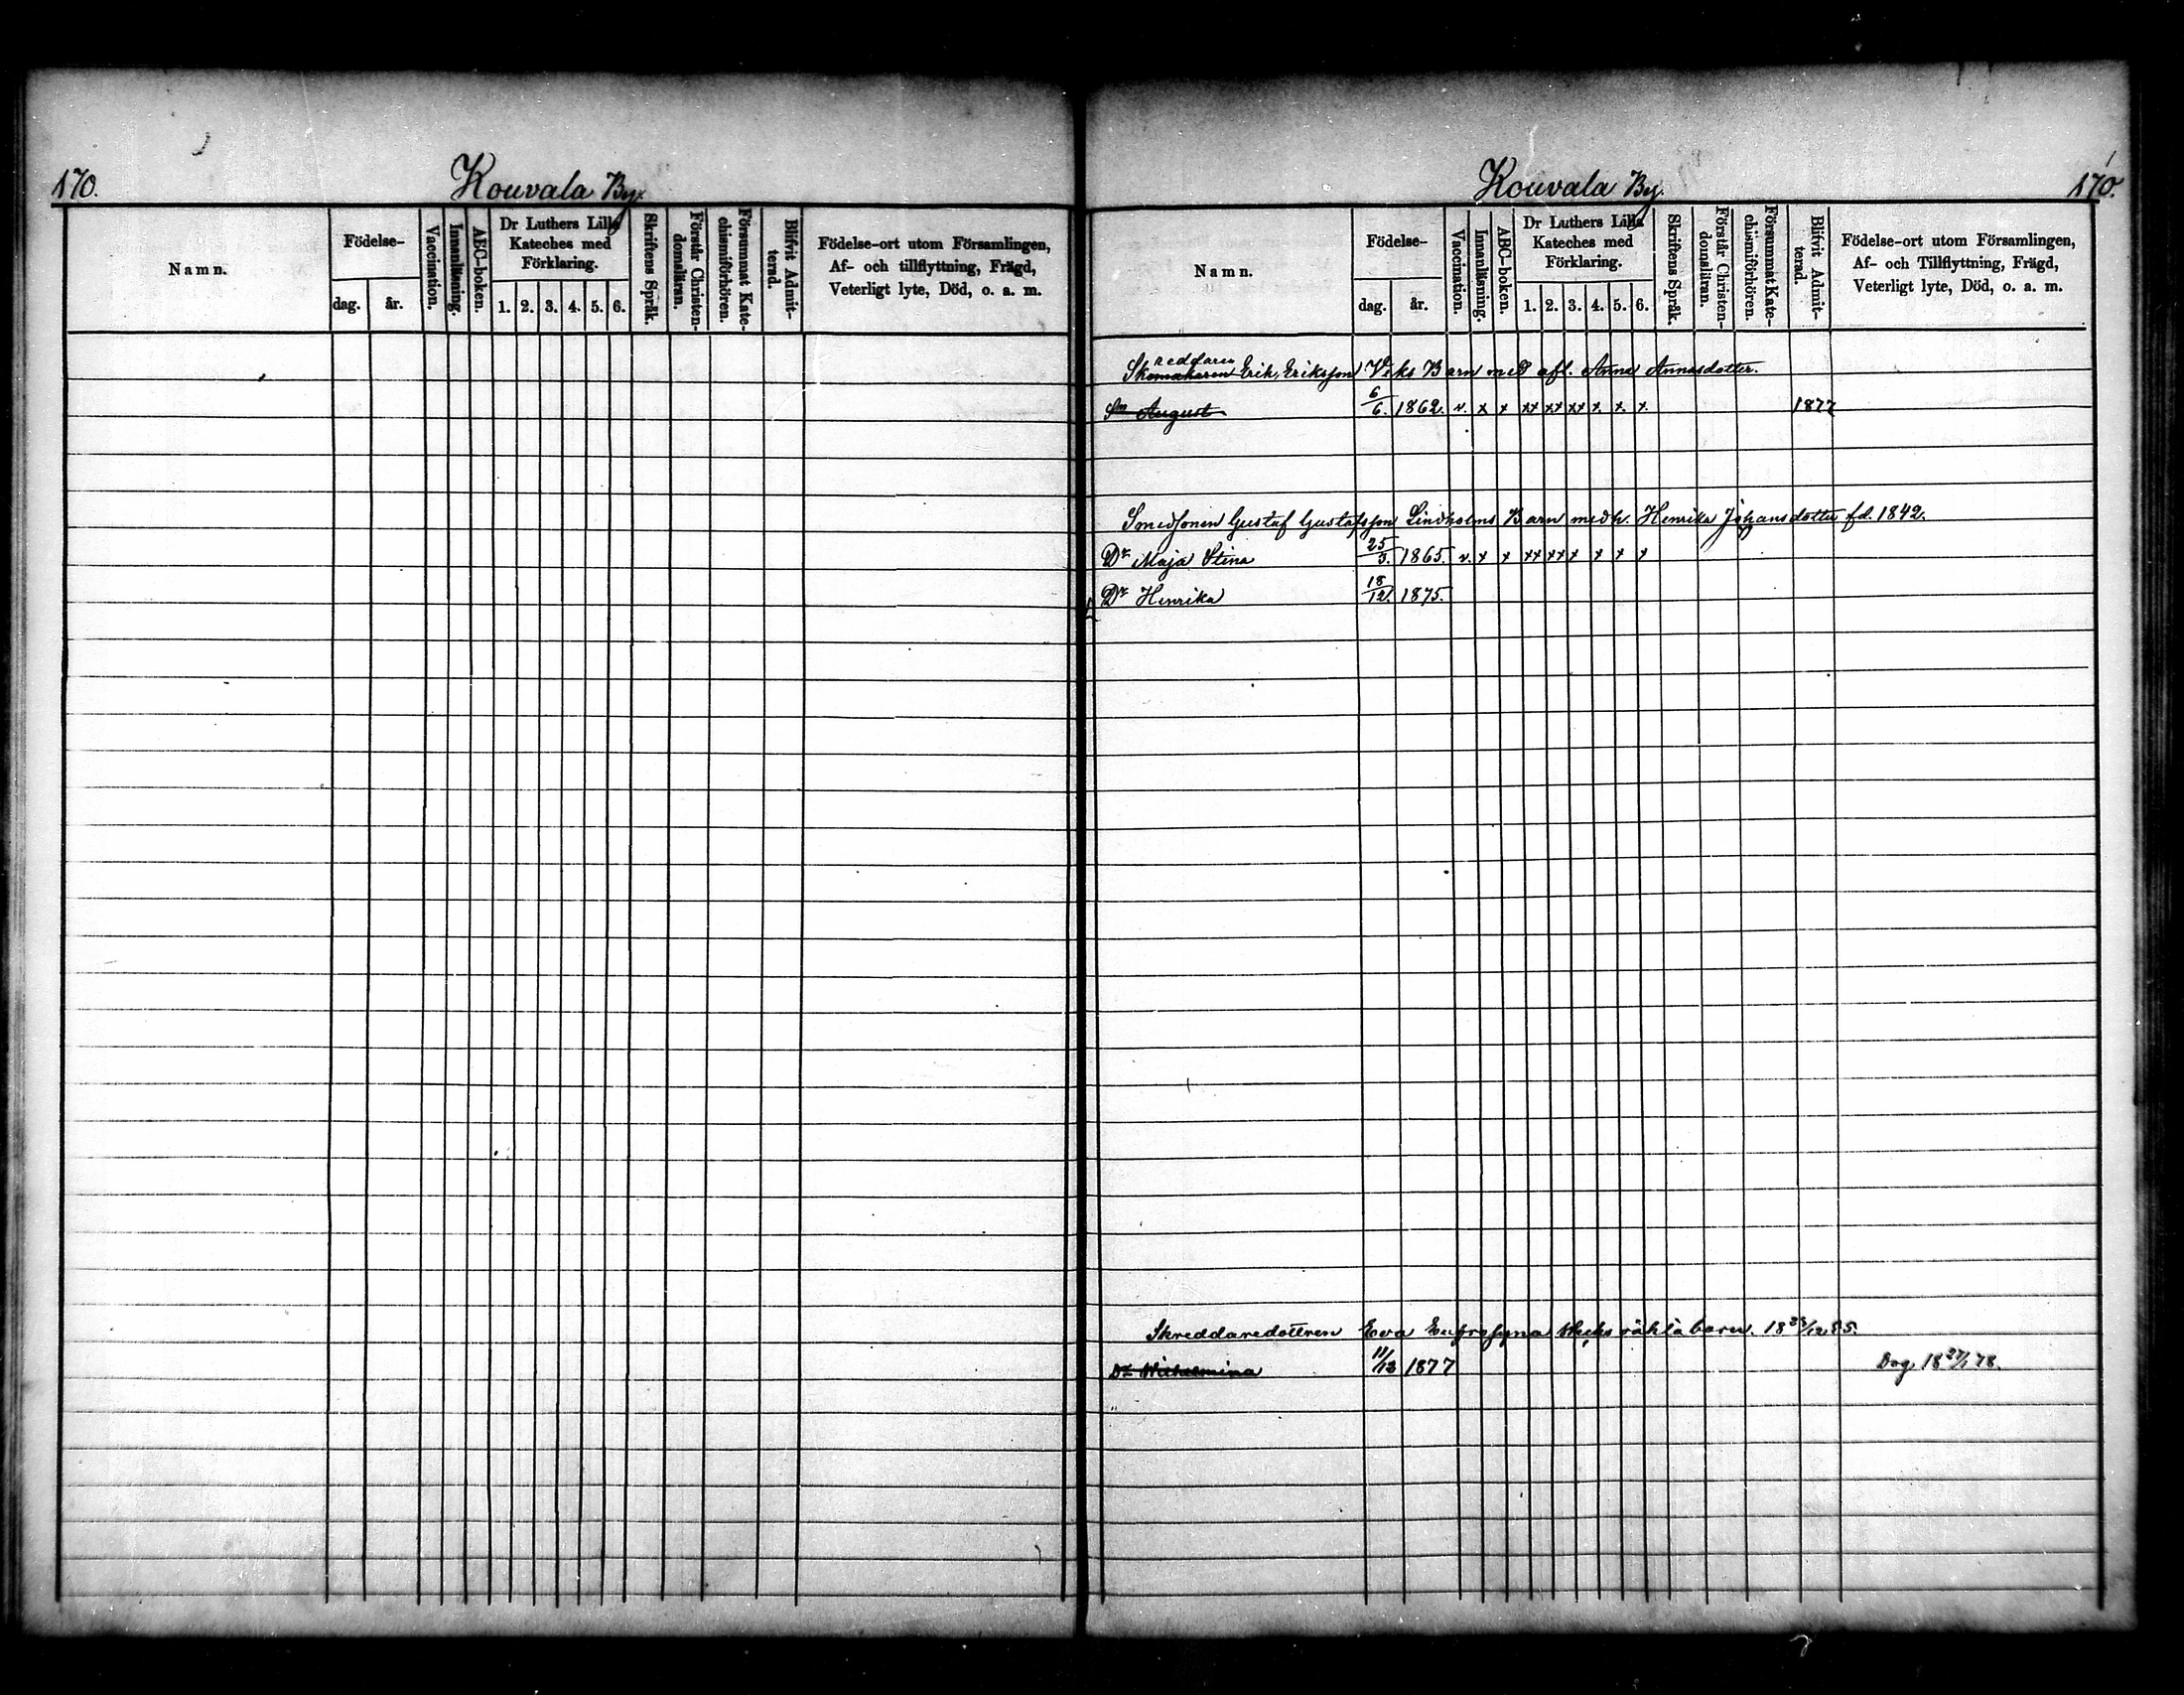 170.
Kouvala By.
Namn.
Födelse-
dag.
år.
Vaccination.
Innanläsning.
ABC-boken.
Dr Luthers Lilla
Kateches med
Förklaring.
1. 2. 3. 4. 5. 6.
Skriftens Språk.
Förstår Christen-
domsläran.
Försummat Kate-
chismiförhören.
Blifvit Admit-
terad.
Födelse-ort utom Församlingen,
Af- och tillflyttning, Frägd,
Veterligt lyte, Död, o. a. m.
Kouvala By.
170.
Namn.
Födelse-
dag.
år.
Vaccination.
Innanläsning.
ABC-boken.
Dr Luthers Lilla
Kateches med
Förklaring.
1. 2. 3. 4. 5. 6.
Skriftens Språk.
Förstår Christen-
domsläran.
Försummat Kate-
chismiförhören.
Blifvit Admit-
terad.
Födelse-ort utom Församlingen,
Af- och Tillflyttning, Frägd,
Veterligt lyte, Död, o. a. m.
reddaren
Skomakaren Erik Eriksson Barn med afl. Anna Annasdotter.
Sn August 6/6. 1862. v. x x xx xx xx x. x. x. 1877
Smedsonen Gustaf Gustafsson Lindholms Barn med h. Henrika Johansdotter fd. 1842.
Dr Maja Stina 25/3. 1865. v. x x xx xx x x x x
Dr Henrika 18/12. 1875.
Skreddaredottren Eva Eufrosyna oäkta barn. 18 /12 85.
Dr Wilhelmina 11/12 1877 Dog 18 27/1 78.